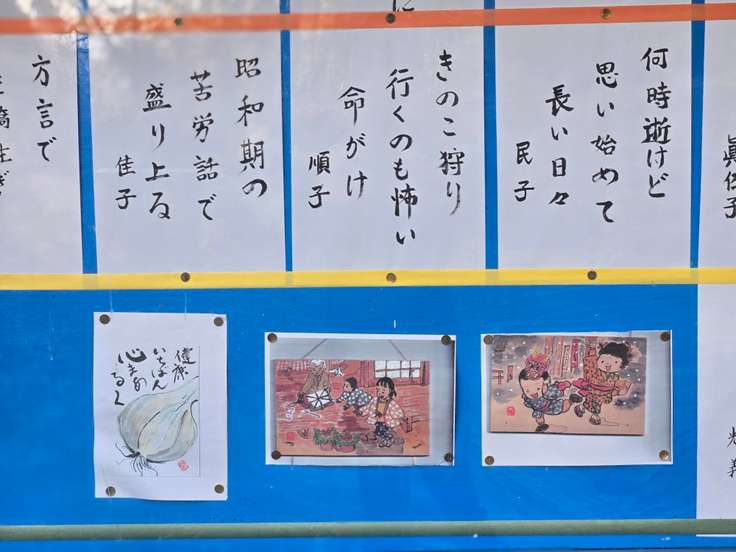 何時逝けど
思い始めて
長い日々
民子
きのこ狩り
行くのも怖い
命がけ
順子
昭和期の
苦労話で
盛り上る
佳子
方言で
健康
いちばん
心まあ
るく